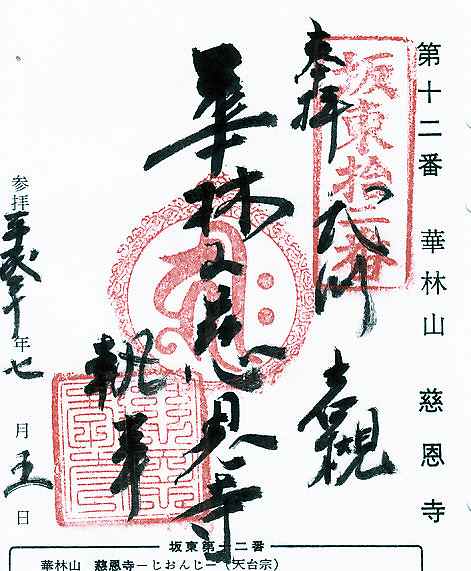 第十二番 華林山 慈恩寺
坂東拾二番
奉拝
華林山慈恩寺
執筆
参拝 平成二十年七月五日
坂東第十二番
華林山 慈恩寺―じおんじ―(天台宗)